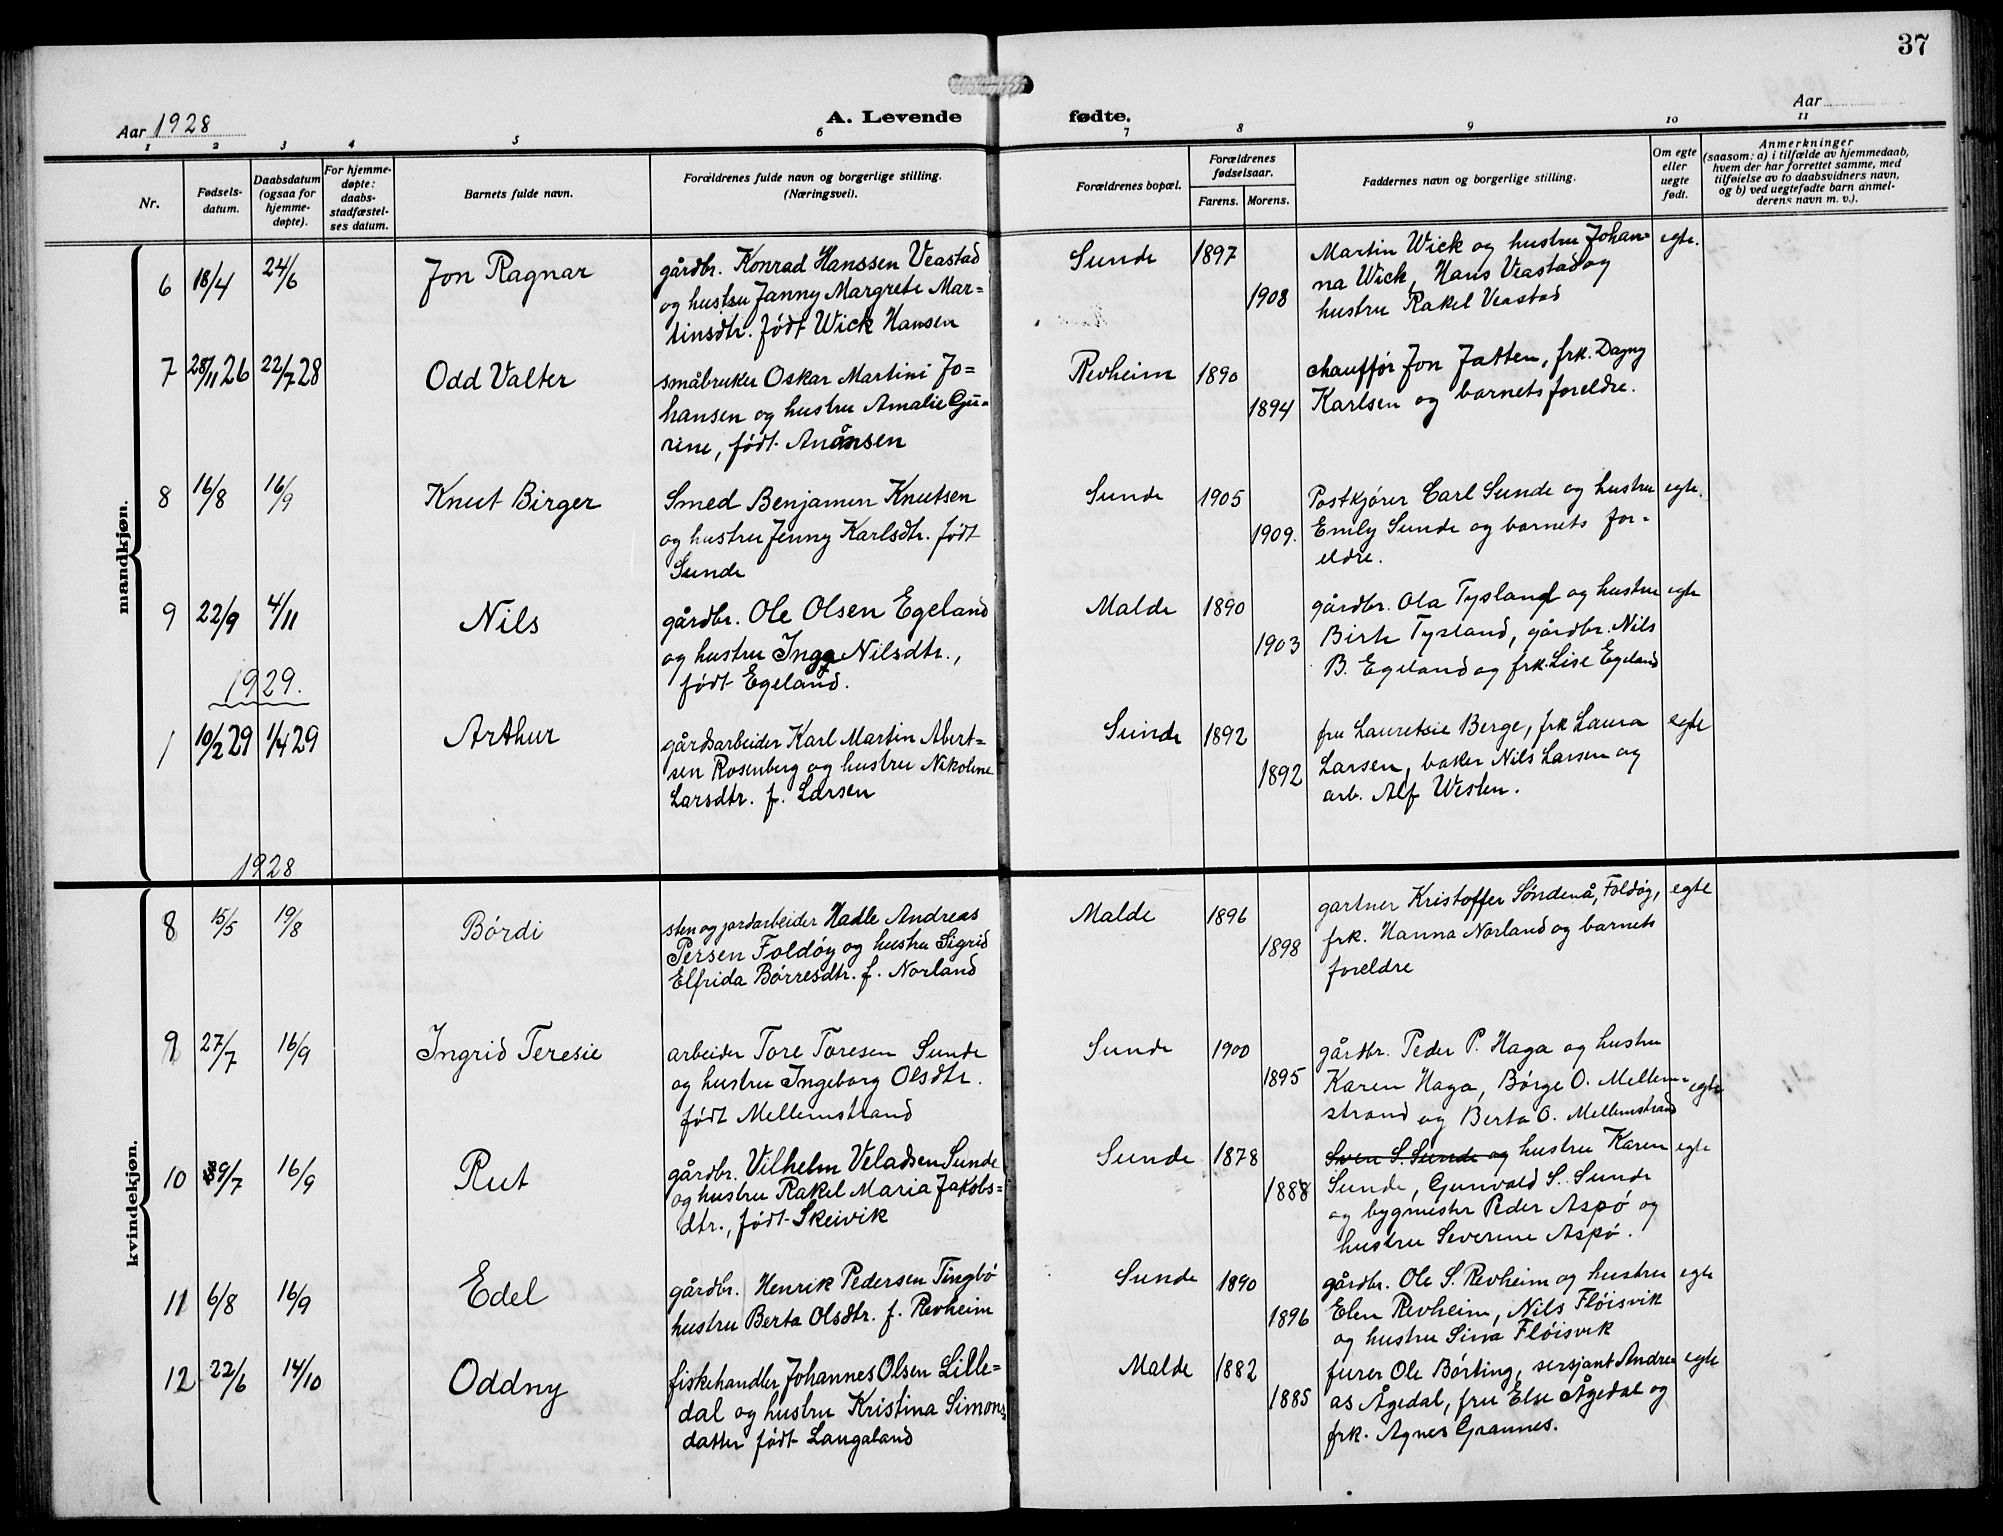 37
Aar 1928
A. Levende fødte.
Aar
1 2 3 4 5 6 7 8 9 10 11
Nr.
Fødsels-
datum.
Daabsdatum
(ogsaa for
hjemme-
døpte).
For hjemme-
døpte:
daabs-
stadfæstel-
ses datum.
Barnets fulde navn.
Forældrenes fulde navn og borgerlige stilling.
(Næringsvei).
Forældrenes bopæl.
Forældrenes
fødselsaar.
Farens. Morens.
Faddernes navn og borgerlige stilling.
Om egte
eller
uegte
født.
Anmerkninger
(saasom: a) i tilfælde av hjemmedaab,
hvem der har forrettet samme, med
tilføielse av to daabsvidners navn,
og b) ved uegtefødte barn anmel-
derens navn m. v.).
mandkjøn.
6 18/4 24/6 Jon Ragnar
gårdbr. Konrad Hanssen Veastad
og hustru Janny Margrete Mar=
tinsdtr. født Wick Hansen
Sunde 1897
1908
Martin Wick og hustru Johan=
na Wick, Hans Veastad og
hustru Rakel Veastad
egte.
7 28/11 26 22/7 28 Odd Valter
småbruker Oskar Martini Jo=
hansen og hustru Amalie Gu=
rine, født Anånsen
Revheim 1890
1894
chauffør Jon Jatten, frk. Dagny
Karlsen og barnets foreldre.
8 16/8 16/9 Knut Birger
Smed Benjamin Knutsen
og hustru Jenny Karlsdtr. født
Sunde
Sunde 1905
1909.
Postkjører Carl Sunde og hustru
Emly Sunde og barnets for-
eldre.
egte.
9 22/9 4/11 Nils
gårdbr. Ole Olsen Egeland
og hustru Inga Nilsdtr.,
født Egeland.
Malde 1890
1903
gårdbr. Ola Tysland og hustru
Birte Tysland, gårdbr. Nils
B. Egeland og frk. Lise Egeland
egte
1929.
1 10/2 29 1/4 29 Arthur
gårdsarbeider Karl Martin Abert=
sen Rosenberg og hustru Nikoline
Larsdtr. f. Larsen
Sunde 1892
1892
fru Lauretsie Berge, frk Laura
Larsen, baker Nils Larsen og
arb. Alf Westen.
egte
1928
kvindekjøn.
8 15/5 19/8 Børdi
sten og jordarbeider Hadle Andreas
Persen Foldøy og hustru Sigrid
Elfrida Børresdtr. f. Norland
Malde 1896
1898
gartner Kristoffer Søndenå, Foldøy,
frk. Hanna Norland og barnets
foreldre
egte
9 27/7 16/9 Ingrid Teresie
arbeider Tore Toresen Sunde
og hustru Ingeborg Olsdtr.
født Mellemstrand
Sunde 1900
1895
gårdbr. Peder P. Haga og hustru
Karen Haga, Børge O. Mellem-
strand og Berta O. Mellemstrand
egte
10 9/7 16/9 Rut
gårdbr. Vilhelm Veladsen Sunde
og hustru Rakel Maria Jakobs=
dtr., født Skeivik
Sunde 1878
1888
Sven S. Sunde og hustru Karen
Sunde, Gunvald S. Sunde
og bygmester Peder Aspø og
hustru Severine Aspø.
egte
11 6/8 16/9 Edel
gårdbr. Henrik Pedersen Tingbø
hustru Berta Olsdtr. f. Revheim
Sunde 1890
1896
gårdbr. Ole S. Revheim og hustru
Elen Revheim, Nils Fløisvik
og hustru Sina Fløisvik
egte
12 22/6 14/10 Oddny
fiskehandler Johannes Olsen Lille=
dal og hustru Kristina Simons
datter født Langaland
Malde 1882
1885
furer Ole Børting, sersjant Andre
as Ågedal, fru Else Ågedal og
frk. Agnes Grannes.
egte